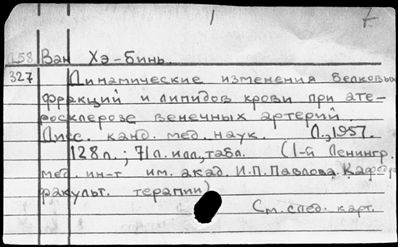 1 7
158 Ван Хэ-бинь.
327 Динамические изменения белковых
фракций и липидов крови при ате-
росклерозе венечных артерий.
Дисс. канд. мед. наук. Л., 1957.
128 л.; 71 л. илл., табл. (1-й Ленингр.
мед. ин-т им. акад. И.П. Павлова. Кафедра
факульт. терапии)
См. след. карт.